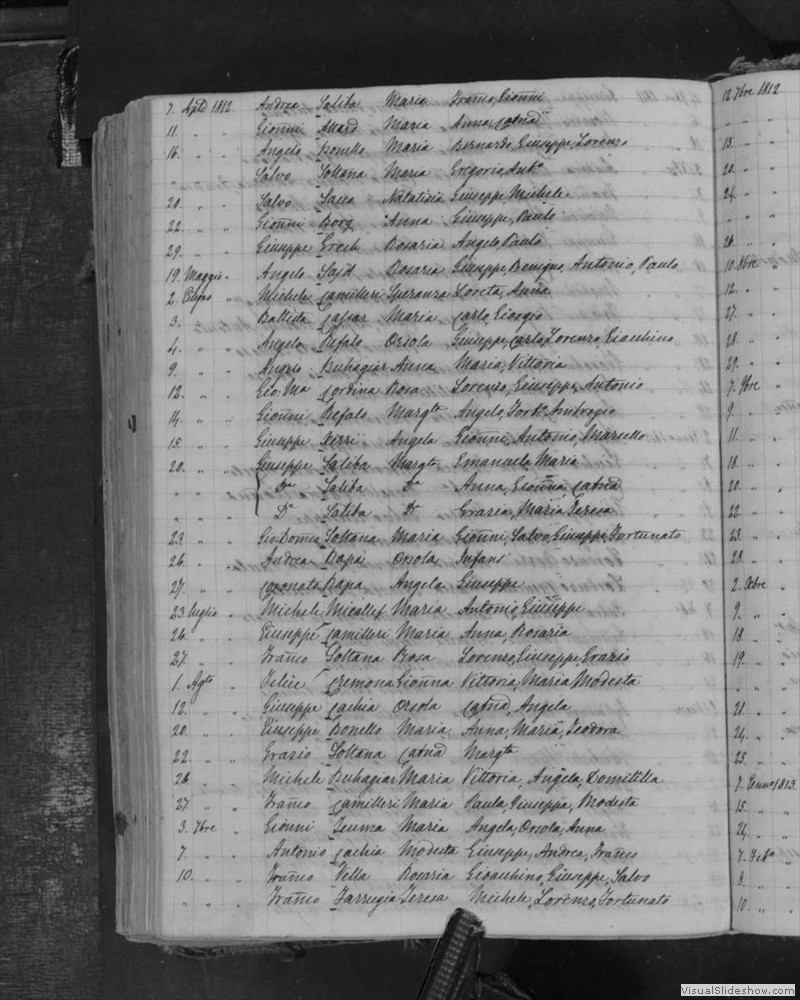 7. Aple 1812 Andrea Saliba Maria Franco, Gionni
11. " " Gionni Attard Maria Anna, Catna
16. " " Angelo Bonello Maria Bernardo, Giuseppe, Lorenzo
" " Salvo Soltana Maria Gregorio, Anto
20. " " Salvo Natalizia Giuseppe Michele
22. " " Gionni Borg Anna Giuseppe, Paulo
29. " " Giuseppe Grech Rosaria Angelo, Paulo
19. Maggio " Angelo Sajd Rosaria Giuseppe, Benigno, Antonio, Paulo
2. Giugno " Michele Camilleri Speranza Loreta, Anna
3. " " Battista Caspar Maria Carlo, Giorgio
4. " " Angelo Refalo Orsola Giuseppe, Carlo, Lorenzo, Giacchino
9. " " Angelo Buhagiar Anna Maria, Vittoria
12. " " Gio: Ma Cordina Rosa Lorenzo, Giuseppe, Antonio
14. " " Gionni Refalo Margta Angelo, Fort. Ambrogio
15. " " Giuseppe Xerri Angela Gionni, Antonio, Marcello
20. " " Giuseppe Saliba Margta Emanuela, Maria
" " Do Saliba Da Anna, Gionna, Catna
" " Do Saliba Da Grazia, Maria, Teresa
23. " " Gio:Domco Soltana Maria Gionni, Salvo, Giuseppe, Fortunato
26. " " Andrea Rapa Orsola Infans
27. " " Coronato Rapa Angela Giuseppe
23. Luglio " Michele Micallef Maria Antonio, Giuseppe
26. " " Giuseppe Camilleri Maria Anna, Rosaria
27. " " Franco Soltana Rosa Lorenzo, Giuseppe, Grazio
1. Agto " Felice Cremona Gionna Vittoria, Maria Modesta
12. " " Giuseppe Cachia Orsola Catna, Angela
20. " " Giuseppe Bonello Maria Anna, Maria, Teodora
22. " " Grazio Soltana Catna Margta
26. " " Michele Buhagiar Maria Vittoria, Angela, Domitilla
27. " " Franco Camilleri Maria Paula, Giuseppa, Modesta
3. 7bre " Gionni Zeuma Maria Angela, Orsola, Anna
7. " " Antonio Cachia Modesta Giuseppe, Andrea, Franco
10. " " Franco Vella Rosaria Gioacchino, Giuseppe, Salvo
" " " Franco Farrugia Teresa Michele, Lorenzo, Fortunato
12 7bre 1812
" " "
13. " "
20. " "
24. " "
" " "
26. " "
10. 8bre "
12. " "
27. " "
28. " "
29. " "
7. 9bre "
9. " "
11. " "
18. " "
20. " "
22. " "
23. " "
28. " "
2. Xbre "
9. " "
18. " "
19. " "
" " "
21. " "
24. " "
25. " "
7. Genno 1813.
15. " "
24. " "
7. Febo "
8. " "
10. " "
VisualSlideshow.com